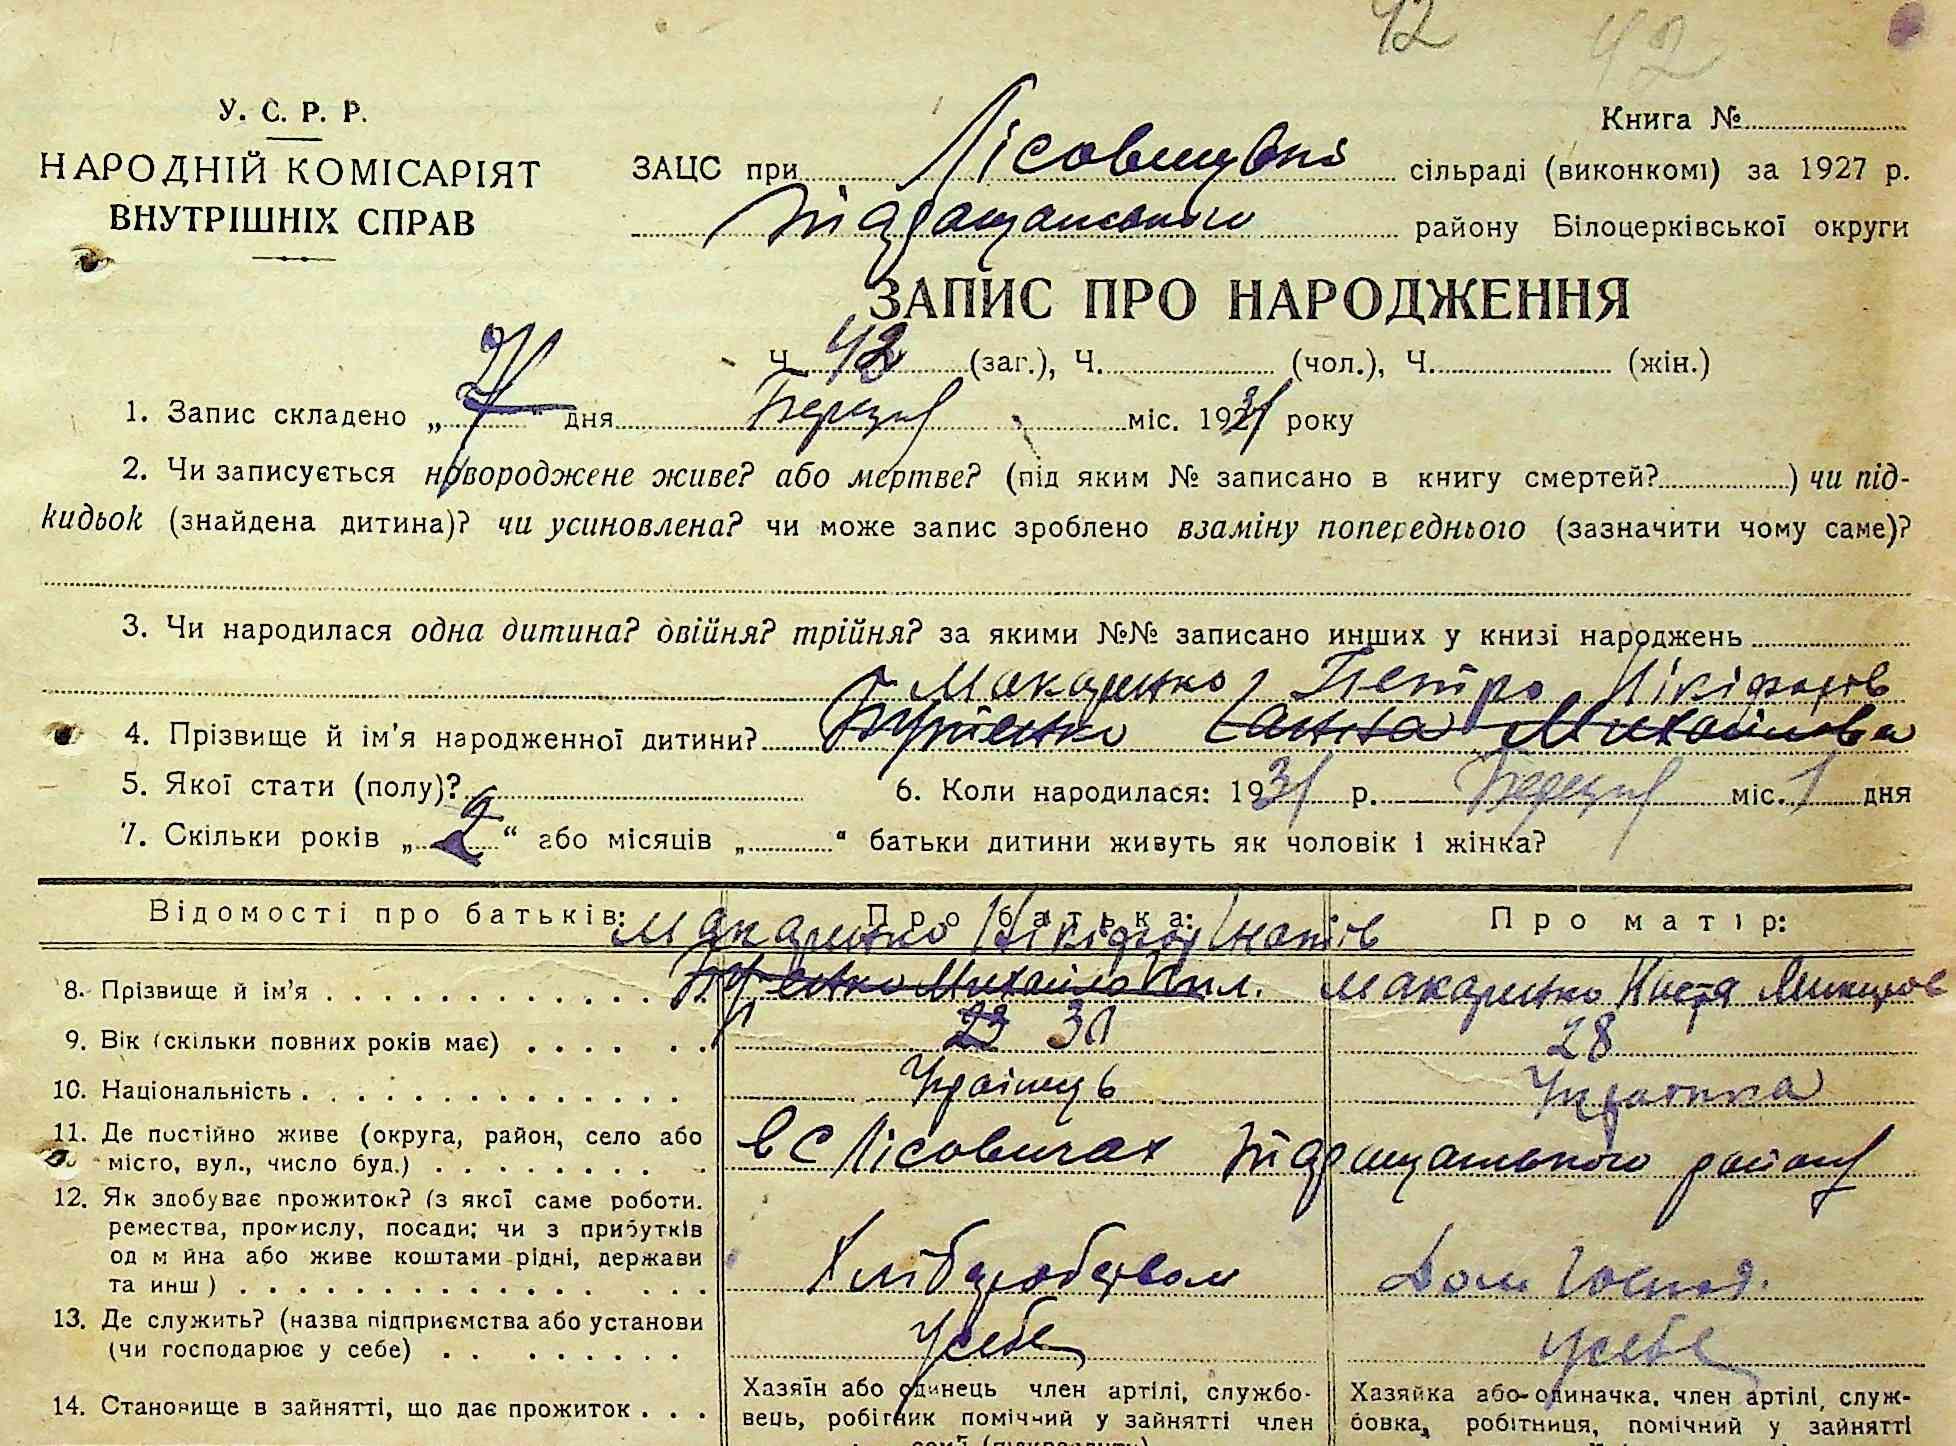 42 42
У. С. Р. Р.
НАРОДНІЙ КОМІСАРІЯТ
ВНУТРІШНІХ СПРАВ
Книга №
ЗАЦС при Лісовицькі сільраді (виконкомі) за 1927 р.
Тіяращанського району Білоцерківської округи
ЗАПИС ПРО НАРОДЖЕННЯ
Ч. 42 (заг.), Ч. (чол.), Ч. (жін.)
1. Запис складено „ “ дня Березня міс. 1931 року
2. Чи записується новороджене живе? або мертве? (під яким № записано в книгу смертей? ) чи під-
кидьок (знайдена дитина)? чи усиновлена? чи може запис зроблено взаміну попереднього (зазначити чому саме)?
3. Чи народилася одна дитина? двійня? трійня? за якими №№ записано инших у книзі народжень
Макаренко Петро Нікіфорів
4. Прізвище й ім'я народженної дитини? Ганна Михайлова
5. Якої стати (полу)? 6. Коли народилася: 1931 р. Березня міс. 1 дня
7. Скільки років „ “ або місяців „ “ батьки дитини живуть як чоловік і жінка?
Відомості про батьків: Про батька: Про матір:
Макаренко Нікіфор Гнатів
8. Прізвище й ім'я Михайло Макаренко Настя
9. Вік (скільки повних років має) 23 31 28
10. Національність Українець Українка
11. Де постійно живе (округа, район, село або місто, вул., число буд.) в с Лісовичах Тіяращанського району
12. Як здобуває прожиток? (з якої саме роботи.
ремества, промислу, посади; чи з прибутків
од майна або живе коштами рідні, держави
та инш) Хліборобством Дом господ.
13. Де служить? (назва підприємства або установи
(чи господарює у себе) У себе У себе
14. Становище в зайнятті, що дає прожиток
Хазяїн або одинець член артілі, службо-
вець, робітник помічний у зайнятті член
Хазяйка або одиначка, член артілі, служ-
бовка, робітниця, помічний у зайнятті